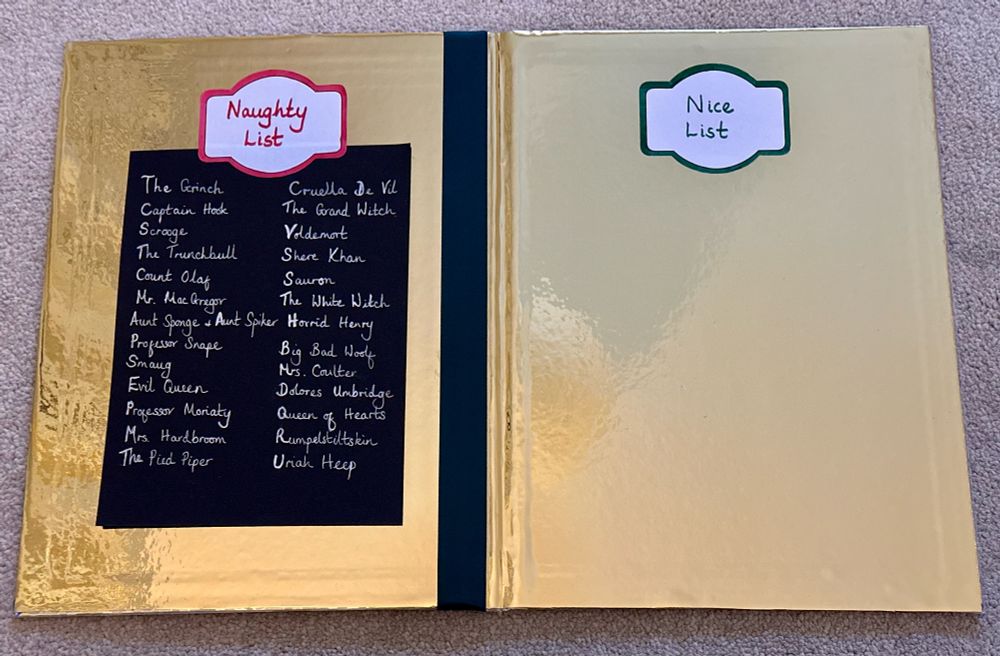 Naughty
List
The Grinch
Captain Hook
Scrooge
The Trunchbull
Count Olaf
Mr. MacGregor
Aunt Sponge + Aunt Spiker
Professor Snape
Smaug
Evil Queen
Professor Moriaty
Mrs. Hardbroom
The Pied Piper
Cruella De Vil
The Grand Witch
Voldemort
Shere Khan
Sauron
The White Witch
Horrid Henry
Big Bad Woolf
Mrs. Coulter
Dolores Umbridge
Queen of Hearts
Rumpelstiltskin
Uriah Heep
Nice
List